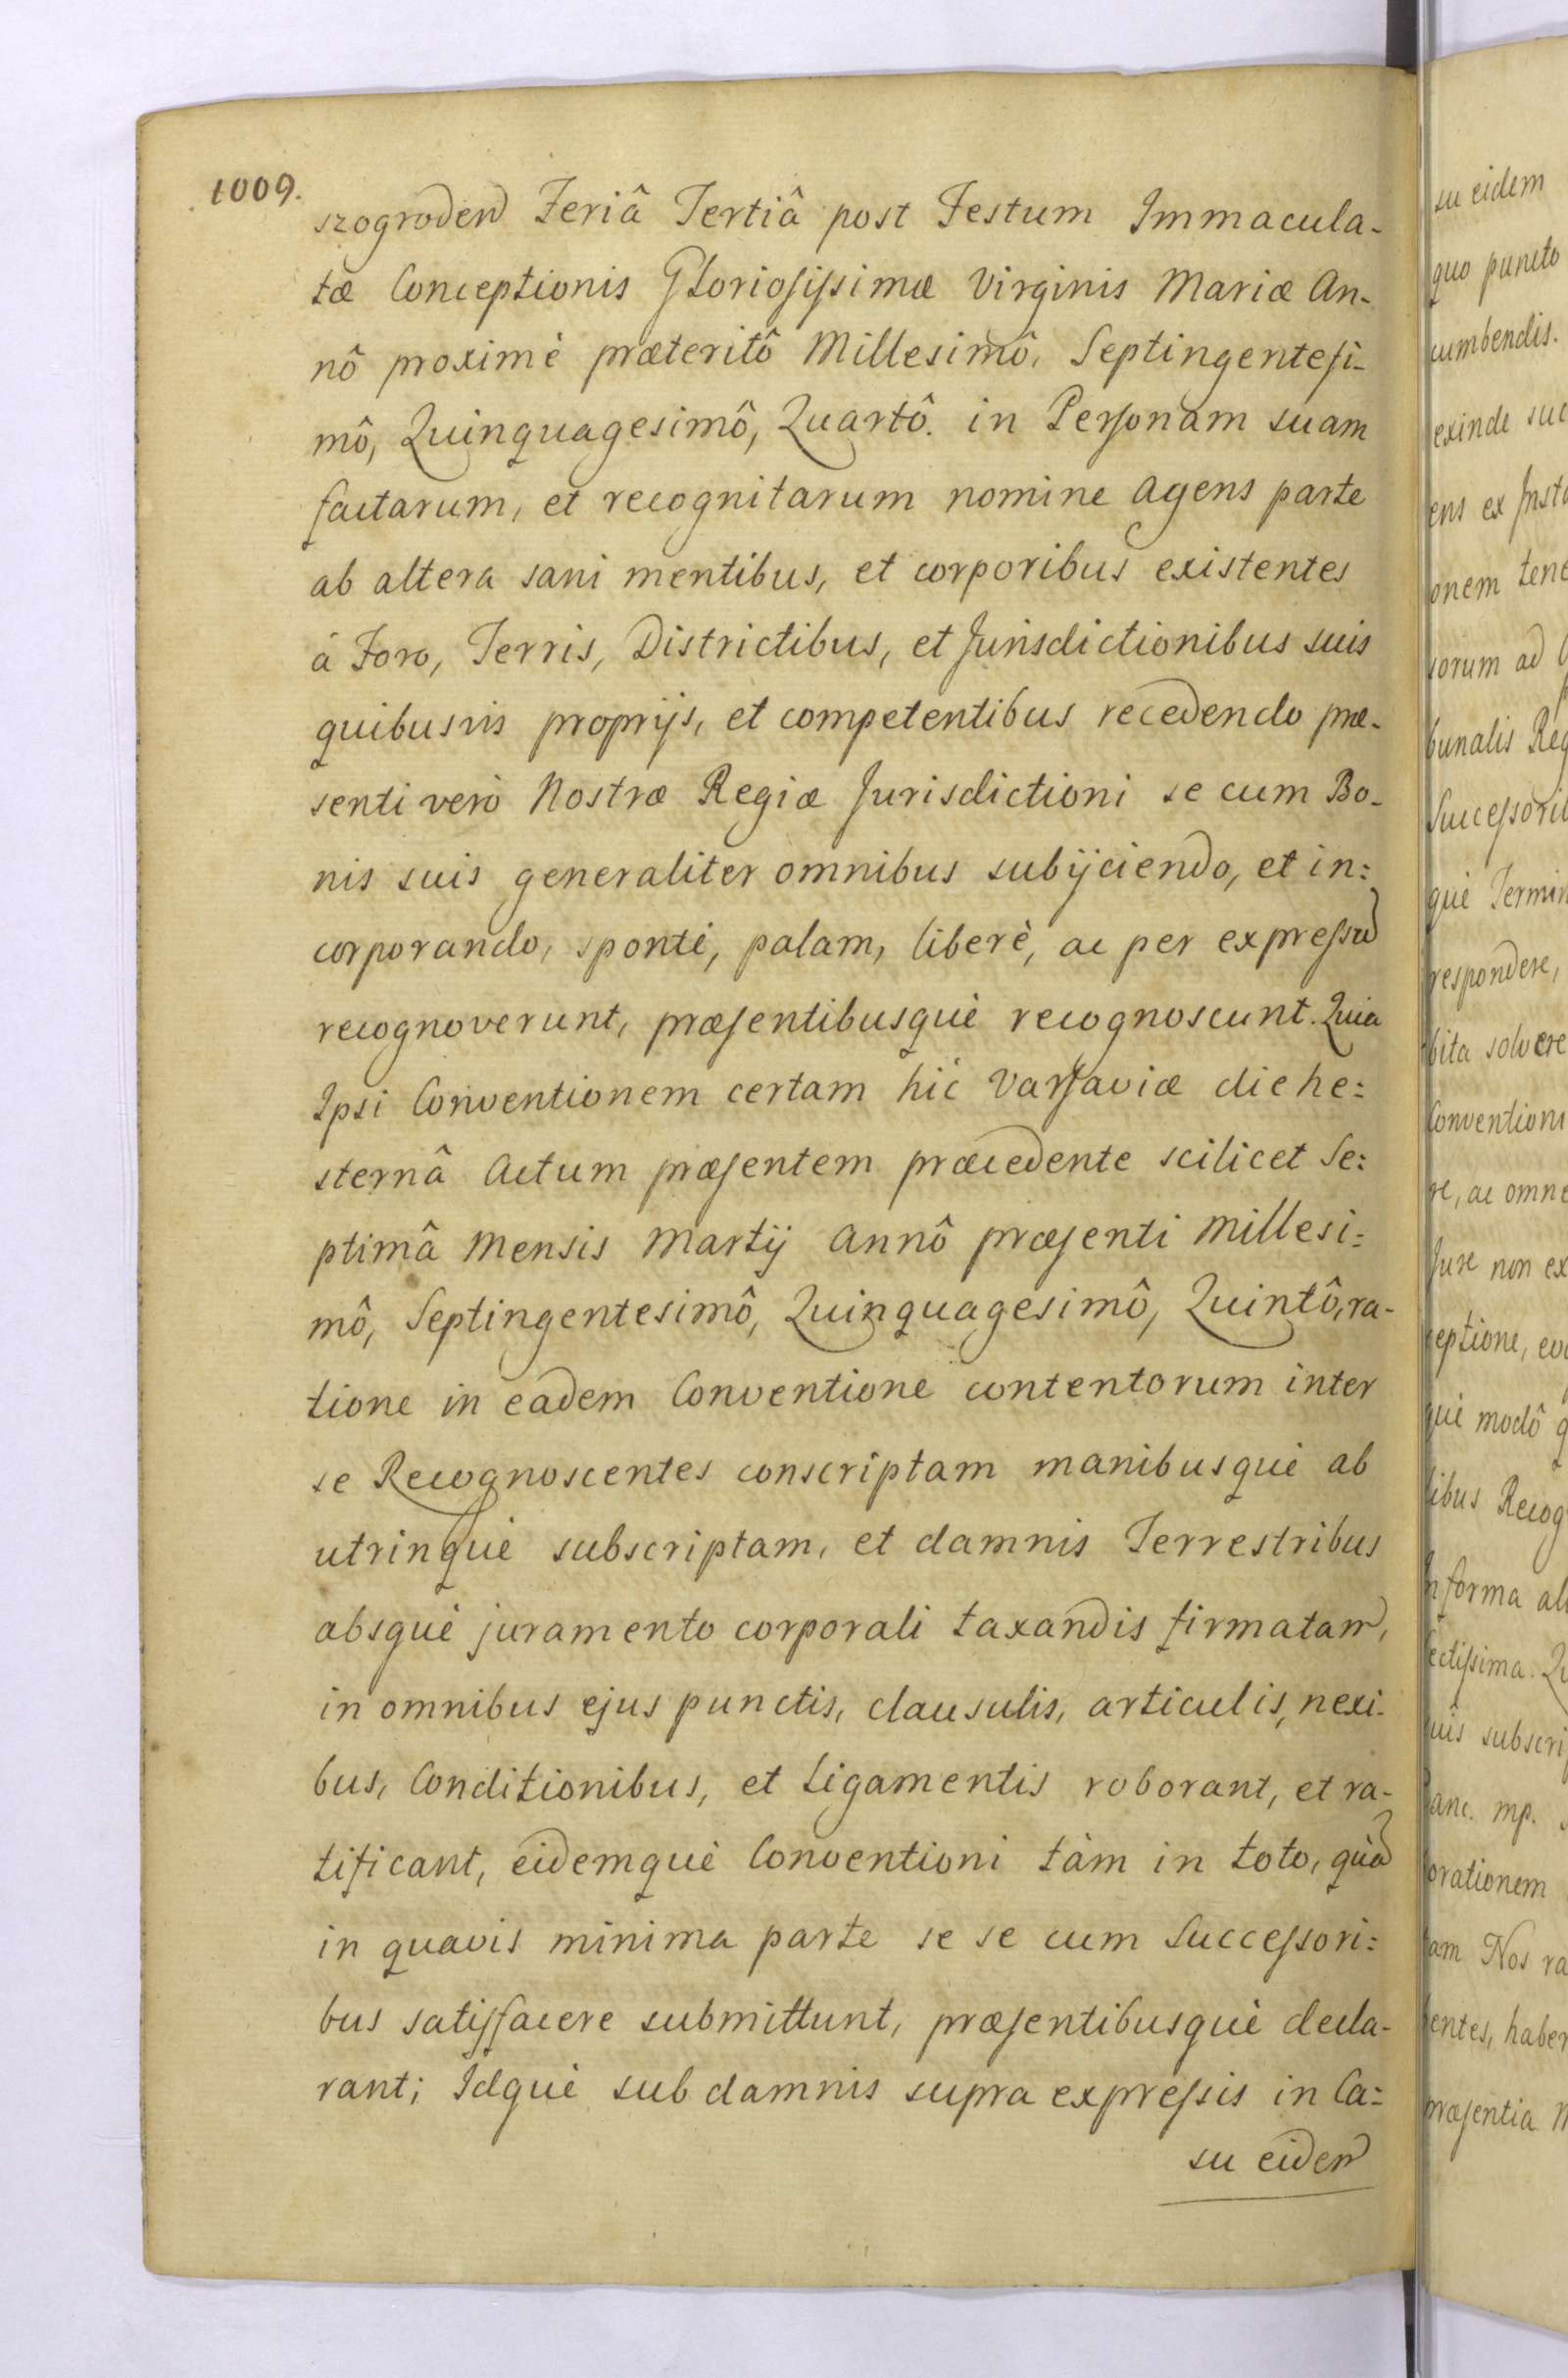 1009.
szogroden Feriâ Tertiâ post Festum Immacula-
tæ Conceptionis Gloriosissimæ Virginis Mariæ An-
nô proximè præteritô Millesimô, Septingentesi-
mô, Quinquagesimô, Quartô. in Personam suam
factarum, et recognitarum nomine agens parte
ab altera sani mentibus, et corporibus existentes
à Foro, Terris, Districtibus, et Jurisdictionibus suis
quibusvis proprijs, et competentibus recedendo præ-
senti verò Nostræ Regiæ Jurisdictioni se cum Bo-
nis suis generaliter omnibus subijciendo, et in:
corporando, spontè, palam, liberè, ac per expressũ
recognoverunt, præsentibusquè recognoscunt. Quia
Ipsi Conventionem certam hic Varsaviæ die he:
sternâ Actum præsentem præcedente scilicet Se:
ptimâ Mensis Martij Annô præsenti Millesi:
mô, Septingentesimô, Quinquagesimô, Quintô, ra-
tione in eadem Conventione contentorum inter
se Recognoscentes conscriptam manibusquè ab
utrinquè subscriptam, et damnis Terrestribus
absquè juramento corporali taxandis firmatam,
in omnibus ejus punctis, clausulis, articulis, nexi-
bus, Conditionibus, et Ligamentis roborant, et ra-
tificant, eidemquè Conventioni tàm in toto, quã
in quavis minima parte se se cum Successori:
bus satisfacere submittunt, præsentibusquè decla-
rant; Idquè sub damnis supra expressis in Ca:
su eidem
su eidem
quo puncto
cumbendis.
exinde suc
ens ex Insta
onem tene
sorum ad
bunalis Reg
Successorib
què Termin
respondere,
bita solvere
Conventioni
re, ac omne
Jure non ex
ceptione, evo
què modô q
libus Recog
forma al
ectissima. Qu
uis subscri
anc. mp.
orationem
am Nos ra
bentes, haber
præsentia N